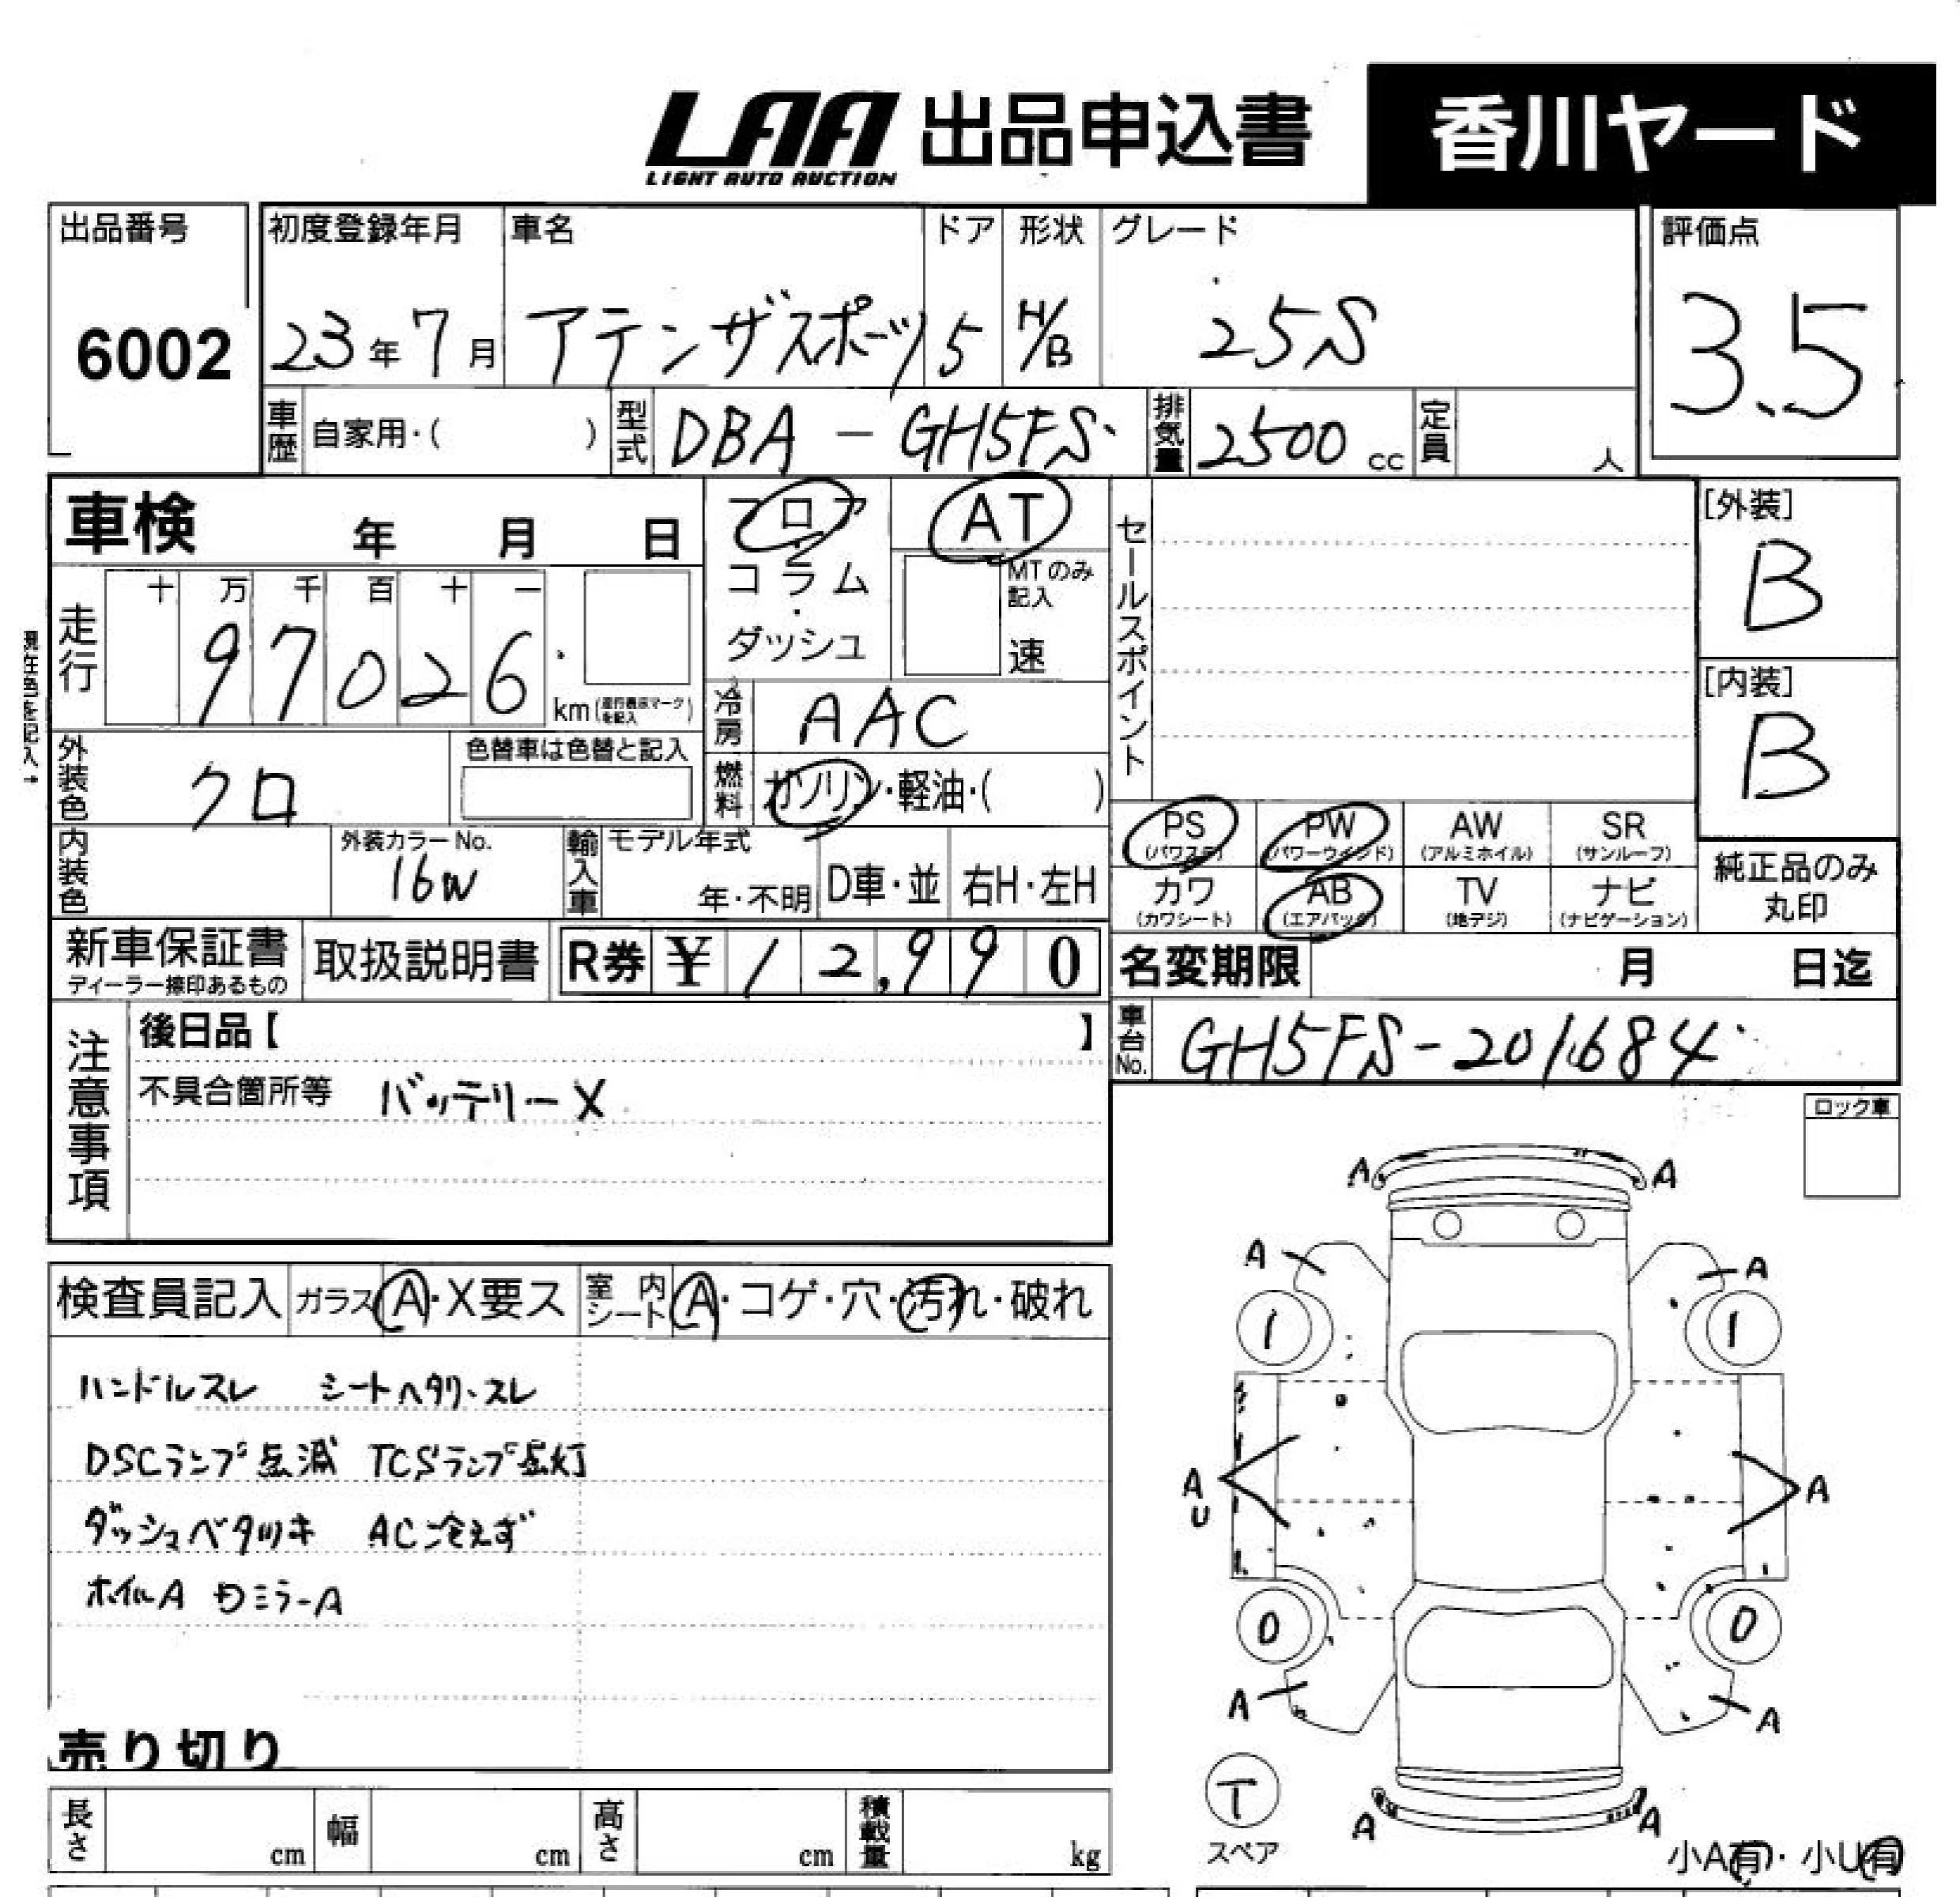 LAA 出品申込書 香川ヤード
LIGHT AUTO AUCTION
出品番号 初度登録年月 車名 ドア 形状 グレード 評価点
6002 23年7月 アテンザスポーツ 5 H/B 25S 3.5
車歴 自家用・( ) 型式 DBA-GH5FS 排気量 2500cc 定員 人
車検 年 月 日 フロア・コラム・ダッシュ AT
MTのみ記入 速
セールスポイント
[外装] B
[内装] B
走行 十 万 千 百 十 一
97026 km
現在色を記入→
冷房 AAC
外装色 クロ 色替車は色替と記入
燃料 ガソリン・軽油・( )
PS (パワステ) PW (パワーウインド) AW (アルミホイル) SR (サンルーフ)
カワ (カワシート) AB (エアバッグ) TV (地デジ) ナビ (ナビゲーション)
純正品のみ丸印
内装色 外装カラーNo. 16W 輸入車 モデル年式 年・不明 D車・並 右H・左H
新車保証書 取扱説明書 R券 ¥12,990 名変期限 月 日迄
車台No. GH5FS-201684
注意事項
後日品【 】
不具合箇所等 バッテリーX
ロック車
検査員記入 ガラス A・X要ス 室内シート A・コゲ・穴・汚れ・破れ
ハンドルスレ シートヘタリ・スレ
DSCランプ点滅 TCSランプ点灯
ダッシュベタツキ AC冷えず
ホイルA ミラーA
売り切り
A A
A A
1 1
A U A
0 0
A A
T
スペア
A A
小A有・小U有
長さ cm 幅 cm 高さ cm 積載量 kg